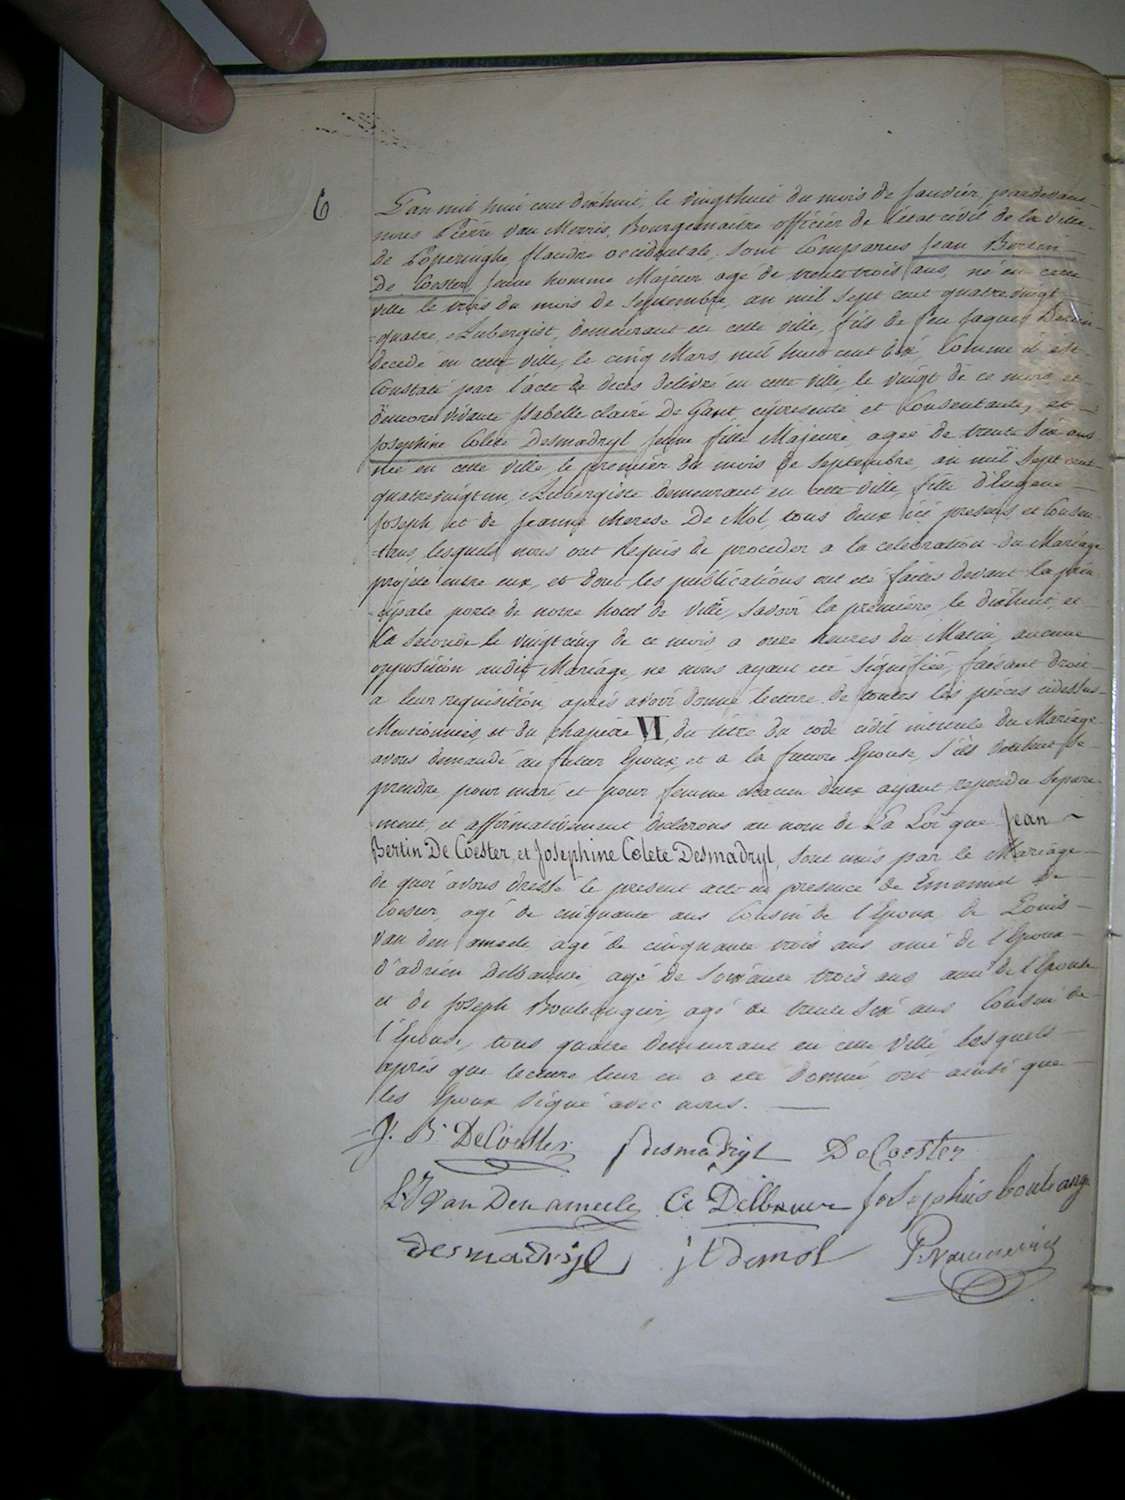 6
L'an mil huit cent dixhuit, le vingthuit du mois de Janviér, pardevant
nous Piérre Van Merris, Bourgemaitre officiér de l'état civil de la Ville
de Poperinghe flandre occidentale, sont Comparus Jean Bertin
De Coester Jeune homme Majeur agé de trente trois ans, né en cette
ville le trois du mois de Septembre, an mil sept cent quatre vingt
quatre, Aubergist, demeurant en cette ville, fils de feu Jaques
decedé en cette ville, le cinq Mars mil huit cent dix, Comme il est
Constaté par l'acte de decès delivré en cette ville le vingt de ce mois et
encore vivante Isabelle claire De Gant ciprésente et Consentante, et
Josephine Colete Desmadryl Jeune fille Majeure, ageé de trente six ans
neé en cette ville, le premiér du mois de Septembre, an mil sept cent
quatrevingt un, Aubergiste demeurant en cette ville, fille d'Eugene
Joseph et de Jeanne therese De Mol, tous deux ici presens et Consen
tans, lesquels nous ont Requis de proceder a la celebration du Mariage
projété entre eux, et dont les publications ont eté faites devant la prin
cipale porte de notre hotel de ville, Savoir la première, le dixhuit, et
la Seconde le vingtcinq de ce mois a onze heures du Matin, aucune
opposition audit Mariage, ne nous ayant eté signifiée, faisant droit
a leur requisition, après avoir donné lecture de toutes les piéces cidessus
Mentionneés, et du chapitre VI, du titre du code civil intitulé du Mariage
avons demandé au futur Epoux, et a la future Epouse, s'ils veulent se
prendre pour mari et pour femme chacun deux ayant repondu Separe
ment, et affirmativement declarons au nom de La Loi que Jean
Bertin De Coester, et Josephine Colete Desmadryl, sont unis par le Mariage
de quoi avons dressé le present acte en presence de Emanuel De
Coester, agé de cinquante ans Cousin de l'Epoux, de Louis
Van den ameele agé de cinquante trois ans ami de l'Epoux
d'adrien Delbaere, agé de Soixante trois ans ami de l'Epouse
et de Joseph Boulangier, agé de trente six ans Cousin de
l'Epouse, tous quatre demeurant en cette Ville, lesquels
après que lecture leur en a eté donné, ont ainsi que
les Epoux signé avec nous.
J. B. DeCoester Desmadryl DeCoester
L J Van Den ameele Josephus boulange
desmadryl j t demol P. vanmerris